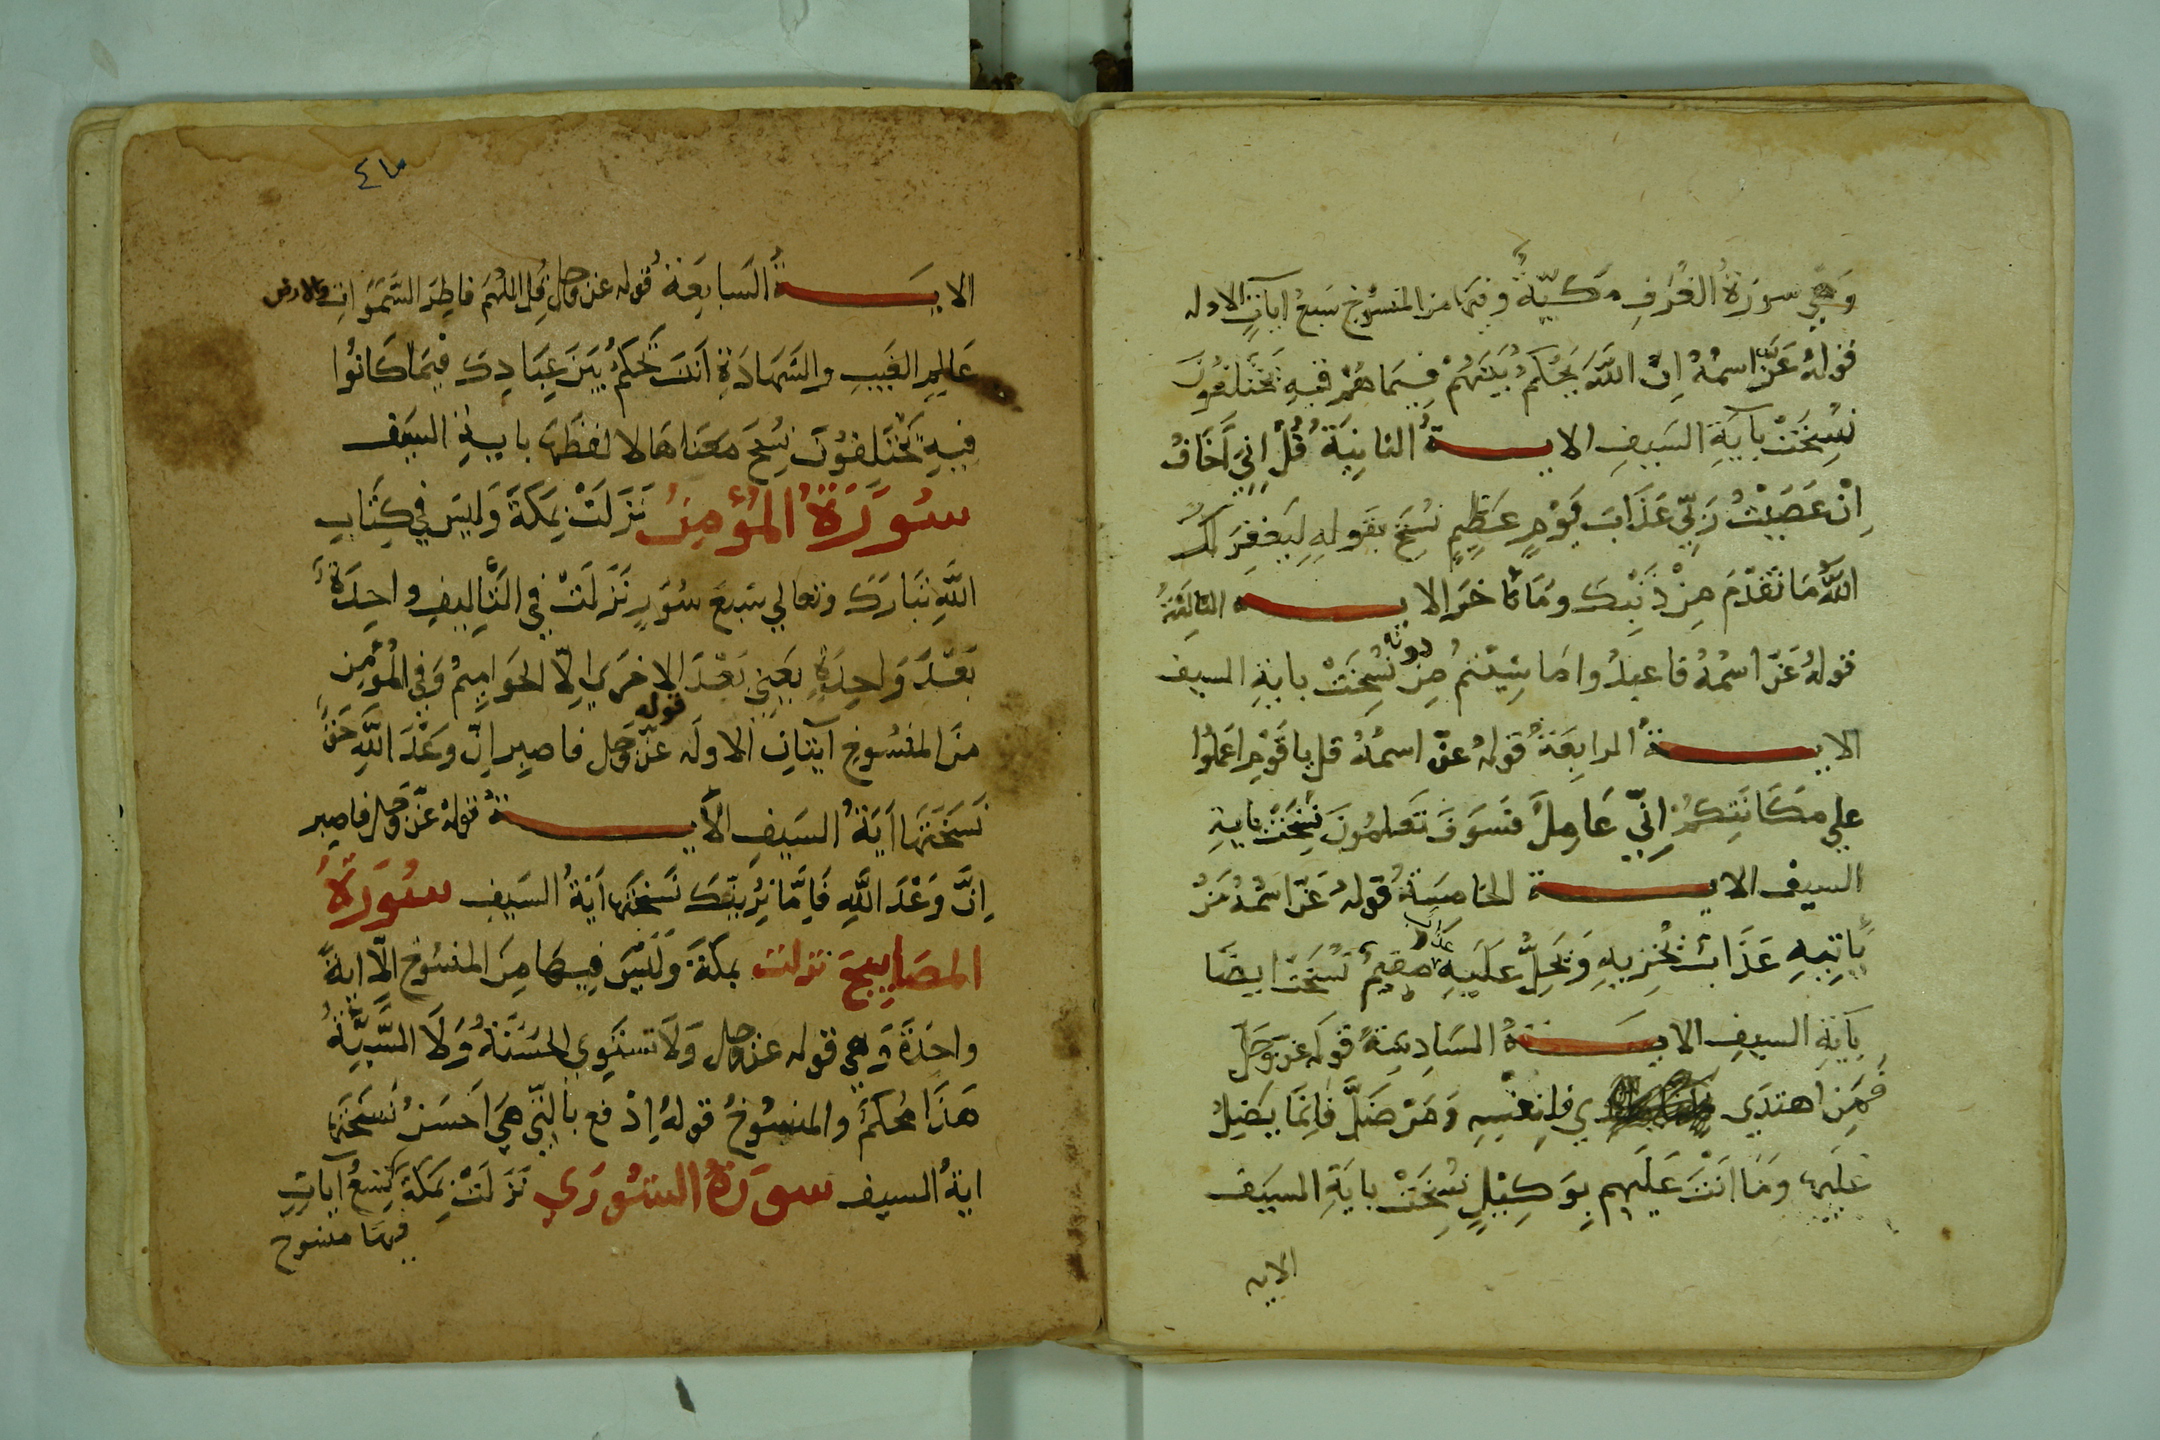 وَهِيَ سورَةُ الغُرَفِ مَكيّةٌ وفيها من المنسوخ سَبعُ آياتٍ الاوله
قولُهُ عَزّ اسمُهُ اِنّ اللَّهَ يَحْكُمُ بَيْنَهُمْ فِيمَا هُمْ فيهِ يَخْتَلفُونَ
نُسِخَتْ بآيَةِ السَيفِ الايــــةُ الثانِيَةُ قُلْ اِنِّيَ اَخَافُ
اِنْ عَصَيْتُ رَبّي عَذَابَ يَوْمٍ عَظيمٍ نُسِخَ بقَولِهِ لِيَغفِرَ لكَ
اللَّهُ مَا تَقَدّمَ مِنْ ذَنْبِكَ ومَا تَاَخرَ الايــــه الثالثةُ
قولهُ عَزّ اسمُهُ فاعبدُوا مَا شِيْتُمْ مِنْ دونه نُسِخَتْ بايةِ السيف
الايــــةُ الرابِعَةُ قولهُ عزّ اسمُهُ قل يا قَوْمِ اعمَلُوا
علي مَكَانَتِكُمْ اِنّي عَامِلٌ فسَوفَ تَعلمُونَ نُسِخَتْ بايةِ
السيف الايــــة الخامسَةُ قولهُ عَزّ اسْمُهُ مَنْ
يَاتِيهِ عَذَابٌ يُخْزِيهِ وَيَحِلُّ عَلَيهِ عذابٌ مقِيمٌ نُسخَتْ ايضًا
بآيَةِ السيفِ الايَــــةُ السَادِسَةُ قولهُ عز وَجَلّ
فَمَنِ اهتَدَي فلِنفْسِهِ وَمَنْ ضَلَّ فَاِنمَا يَضِلُّ
عَلَيهَا وَمَا اَنْتَ عَلَيهِم بِوَكِيْلٍ نُسِخَتْ بايَةِ السيَف
الايه
٤٦
الايَــــةُ السَابعَة قوله عز وجل قُلِ اللهُمَ فاطِرَ السَّمَوَاتِ والارض
عَالِمِ الغَيبِ والشَهَادَةِ اَنتَ تَحكُمُ بَيْنَ عِبَادِكَ فِيمَا كَانُوا
فيهِ يَختَلِفُونَ نُسِخَ مَعنَاهَا لا لفظَهَا بايةِ السيَف
سُورَةُ المُؤمِنُ نَزَلَتْ بِمَكّةَ وَليسَ في كِتَابِ
اللَّهِ تبَارَكَ وتعالي سَبعَ سُوَرٍ نَزَلَتْ في التَّاليفِ واحِدَةً
بَعْدَ وَاحِدَةٍ يعَني بَعْدَ الاخرَي اِلّا الحَوَامِيمُ وَفي المُؤمِنِ
منَ المنسُوخ آيتانِ الاوله قوله عزّ وَجل فاصبِر اِنّ وَعْدَ اللَّهِ حَقٌ
نَسَختَهَا آيَةُ السَيفِ الآيــــةُ قولهُ عزّ وجل فاصبِر
اِنَّ وَعْدَ اللَّهِ فَاِمَّا نُرِيَنّكَ نَسَختهَا آيَةُ السَيفِ سُوَرَةُ
المصَابِيحَ نزلت بمكّةَ وَلَيْسَ فِيهَا مِنَ المنسُوخ اِلّا ايةً
واحِدَةً وَهِيَ قوله عزوجل وَلَا تستَوِي الحَسَنَةُ وَلَا السَّيِّئَةُ
هَذا مُحكَمٌ والمنسُوخُ قولهُ اِدْفع بالتِّي هِيَ اَحسَنُ نُسَختهَا
ايةُ السيف سورَةُ الشُورَي نَزَلَتْ بمَكّةَ تِسعُ آيَاتٍ
فيهَا منسوخ